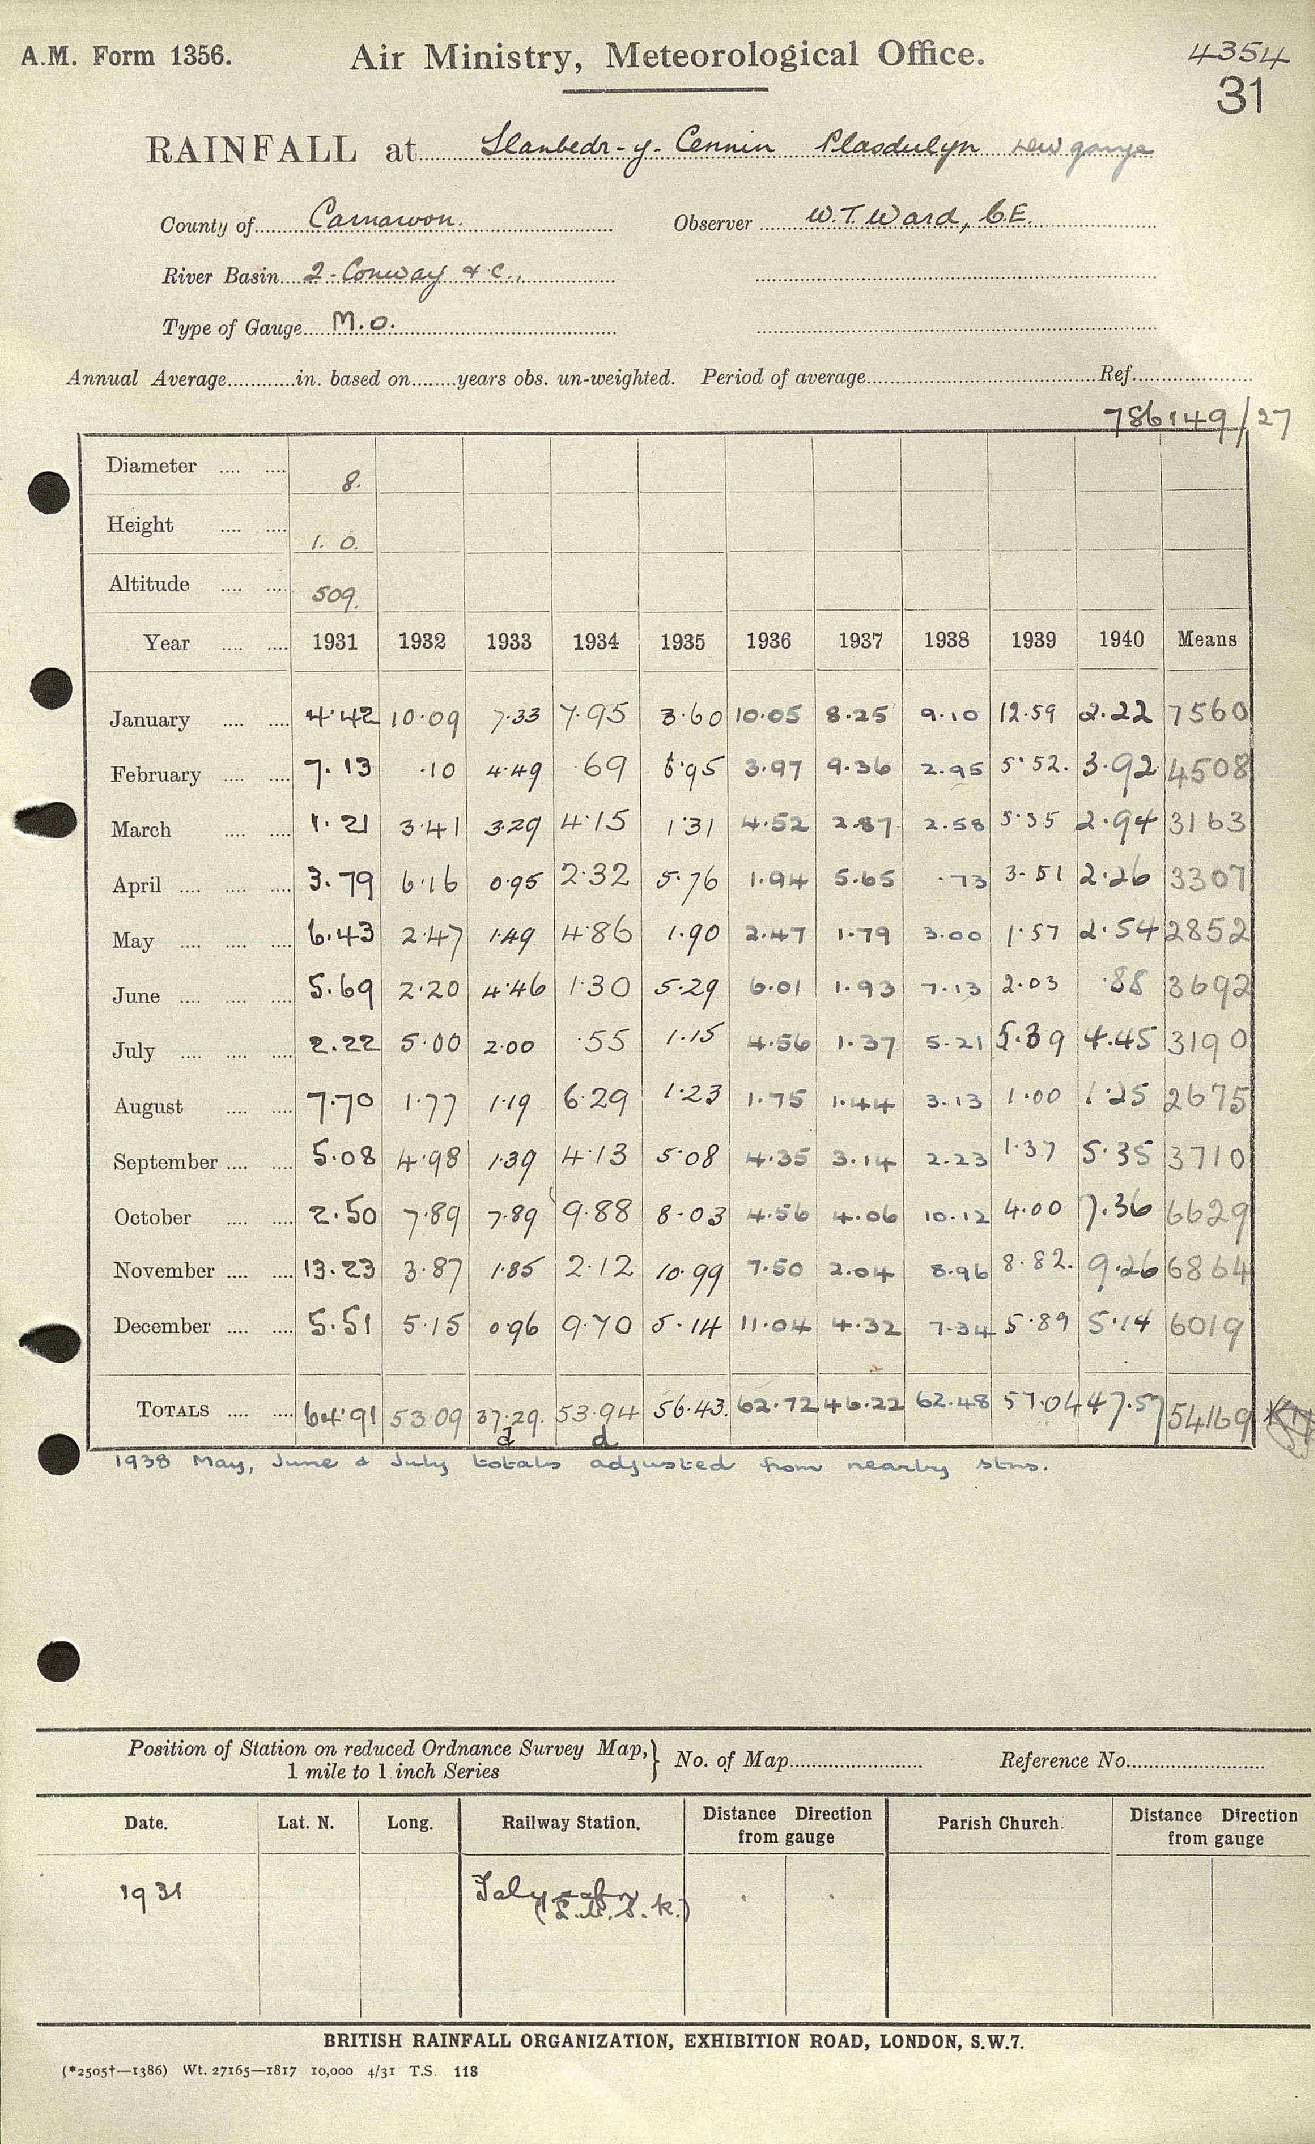 A.M. Form 1356. Air Ministry, Meteorological Office. 4354
31
RAINFALL at Llanbedr-y-Cennin Plasdulyn new gauge
County of Carnarvon. Observer W.T. Ward, C.E.
River Basin 2. Conway &c.,
Type of Gauge M.O.
Annual Average in. based on years obs. un-weighted. Period of average Ref.
786149/27
Diameter 8.
Height 1. 0.
Altitude 509.
Year 1931 1932 1933 1934 1935 1936 1937 1938 1939 1940 Means
January 4.42 10.09 7.33 7.95 3.60 10.05 8.25 9.10 12.59 2.22 7560
February 7.13 .10 4.49 .69 6.95 3.97 9.36 2.95 5.52. 3.92 4508
March 1.21 3.41 3.29 4.15 1.31 4.52 2.87 2.58 5.35 2.94 3163
April 3.79 6.16 0.95 2.32 5.76 1.94 5.65 .73 3.51 2.26 3307
May 6.43 2.47 1.49 4.86 1.90 2.47 1.79 3.00 1.57 2.54 2852
June 5.69 2.20 4.46 1.30 5.29 6.01 1.93 7.13 2.03 .88 3692
July 2.22 5.00 2.00 .55 1.15 4.56 1.37 5.21 5.39 4.45 3190
August 7.70 1.77 1.19 6.29 1.23 1.75 1.44 3.13 1.00 1.25 2675
September 5.08 4.98 1.39 4.13 5.08 4.35 3.14 2.23 1.37 5.35 3710
October 2.50 7.89 7.89 9.88 8.03 4.56 4.06 10.12 4.00 7.36 6629
November 13.23 3.87 1.85 2.12 10.99 7.50 2.04 8.96 8.82. 9.26 6864
December 5.51 5.15 0.96 9.70 5.14 11.04 4.32 7.34 5.89 5.14 6019
TOTALS 64.91 53.09 37.29. 53.94 56.43. 62.72 46.22 62.48 57.04 47.57 54169
d d
1938 May, June & July totals adjusted from nearby stns.
Position of Station on reduced Ordnance Survey Map, } No. of Map Reference No.
1 mile to 1 inch Series
Date. Lat. N. Long. Railway Station. Distance Direction from gauge Parish Church. Distance Direction from gauge
1931 Talycafn
(L.M.S.R.)
BRITISH RAINFALL ORGANIZATION, EXHIBITION ROAD, LONDON, S.W.7.
(*2505†—1386) Wt. 27165—1817 10,000 4/31 T.S. 118